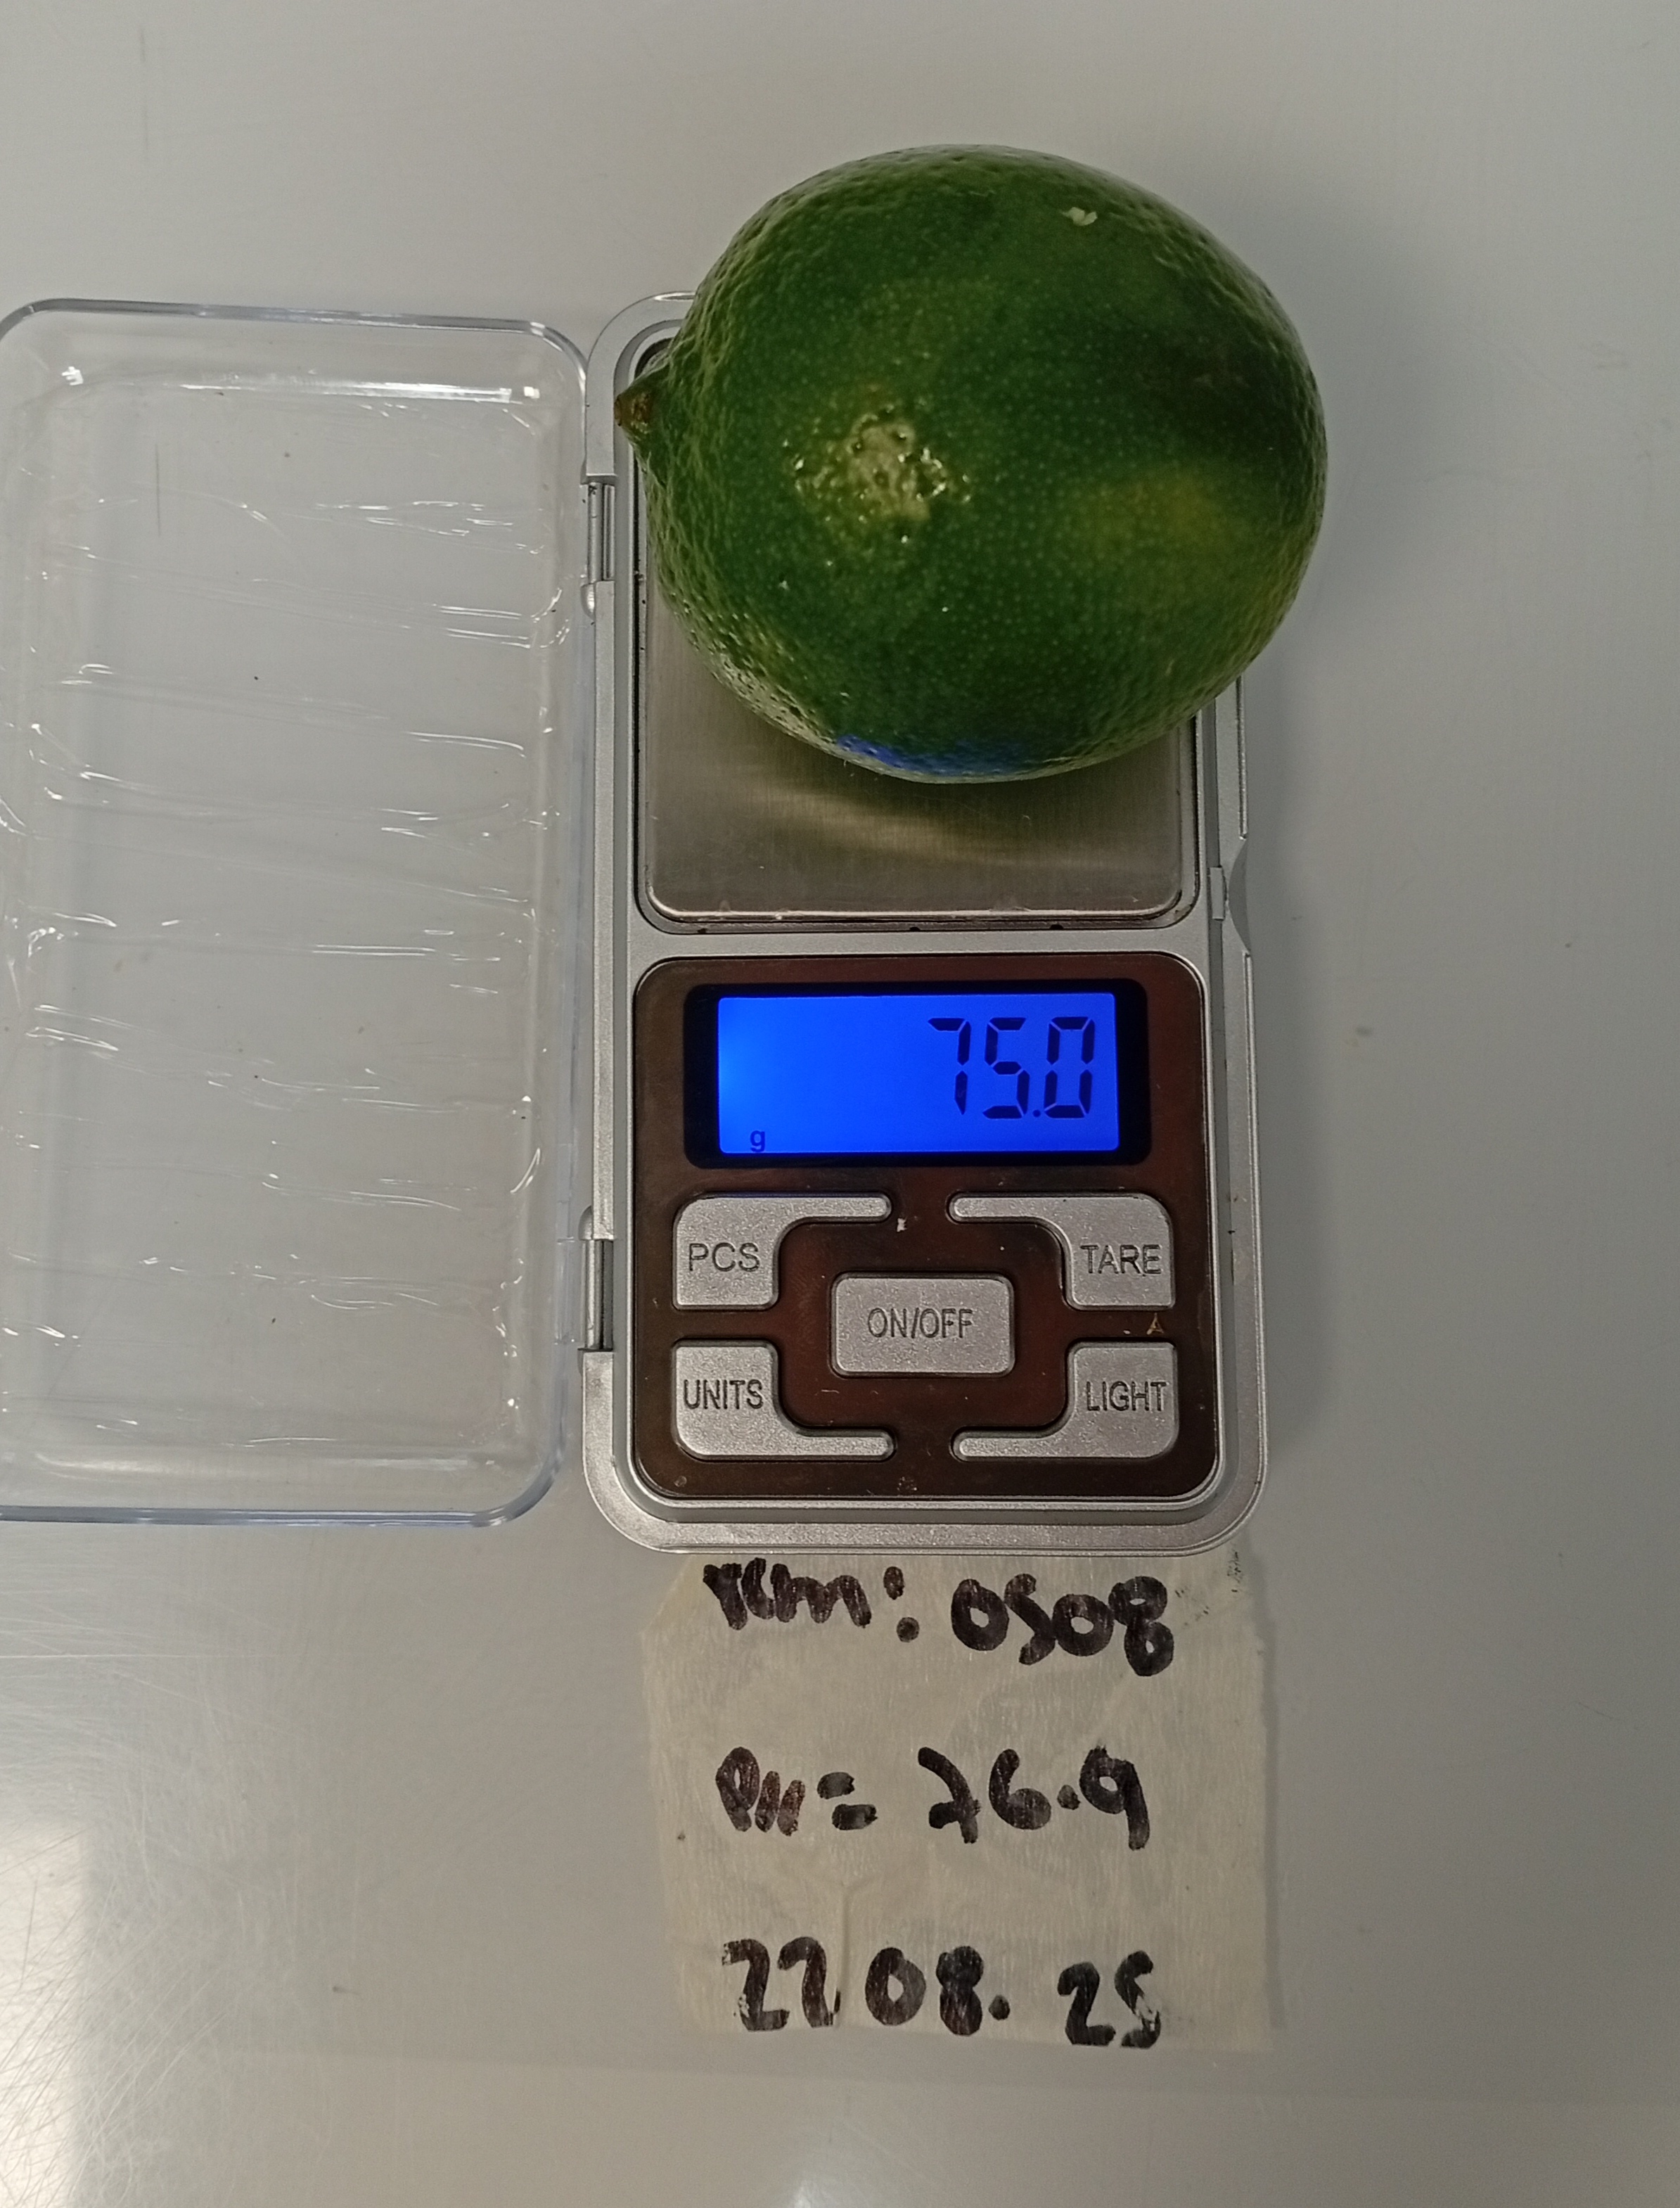 75.0
g
PCS
TARE
ON/OFF
UNITS
LIGHT
: 0508
= 76.9
22 08. 25